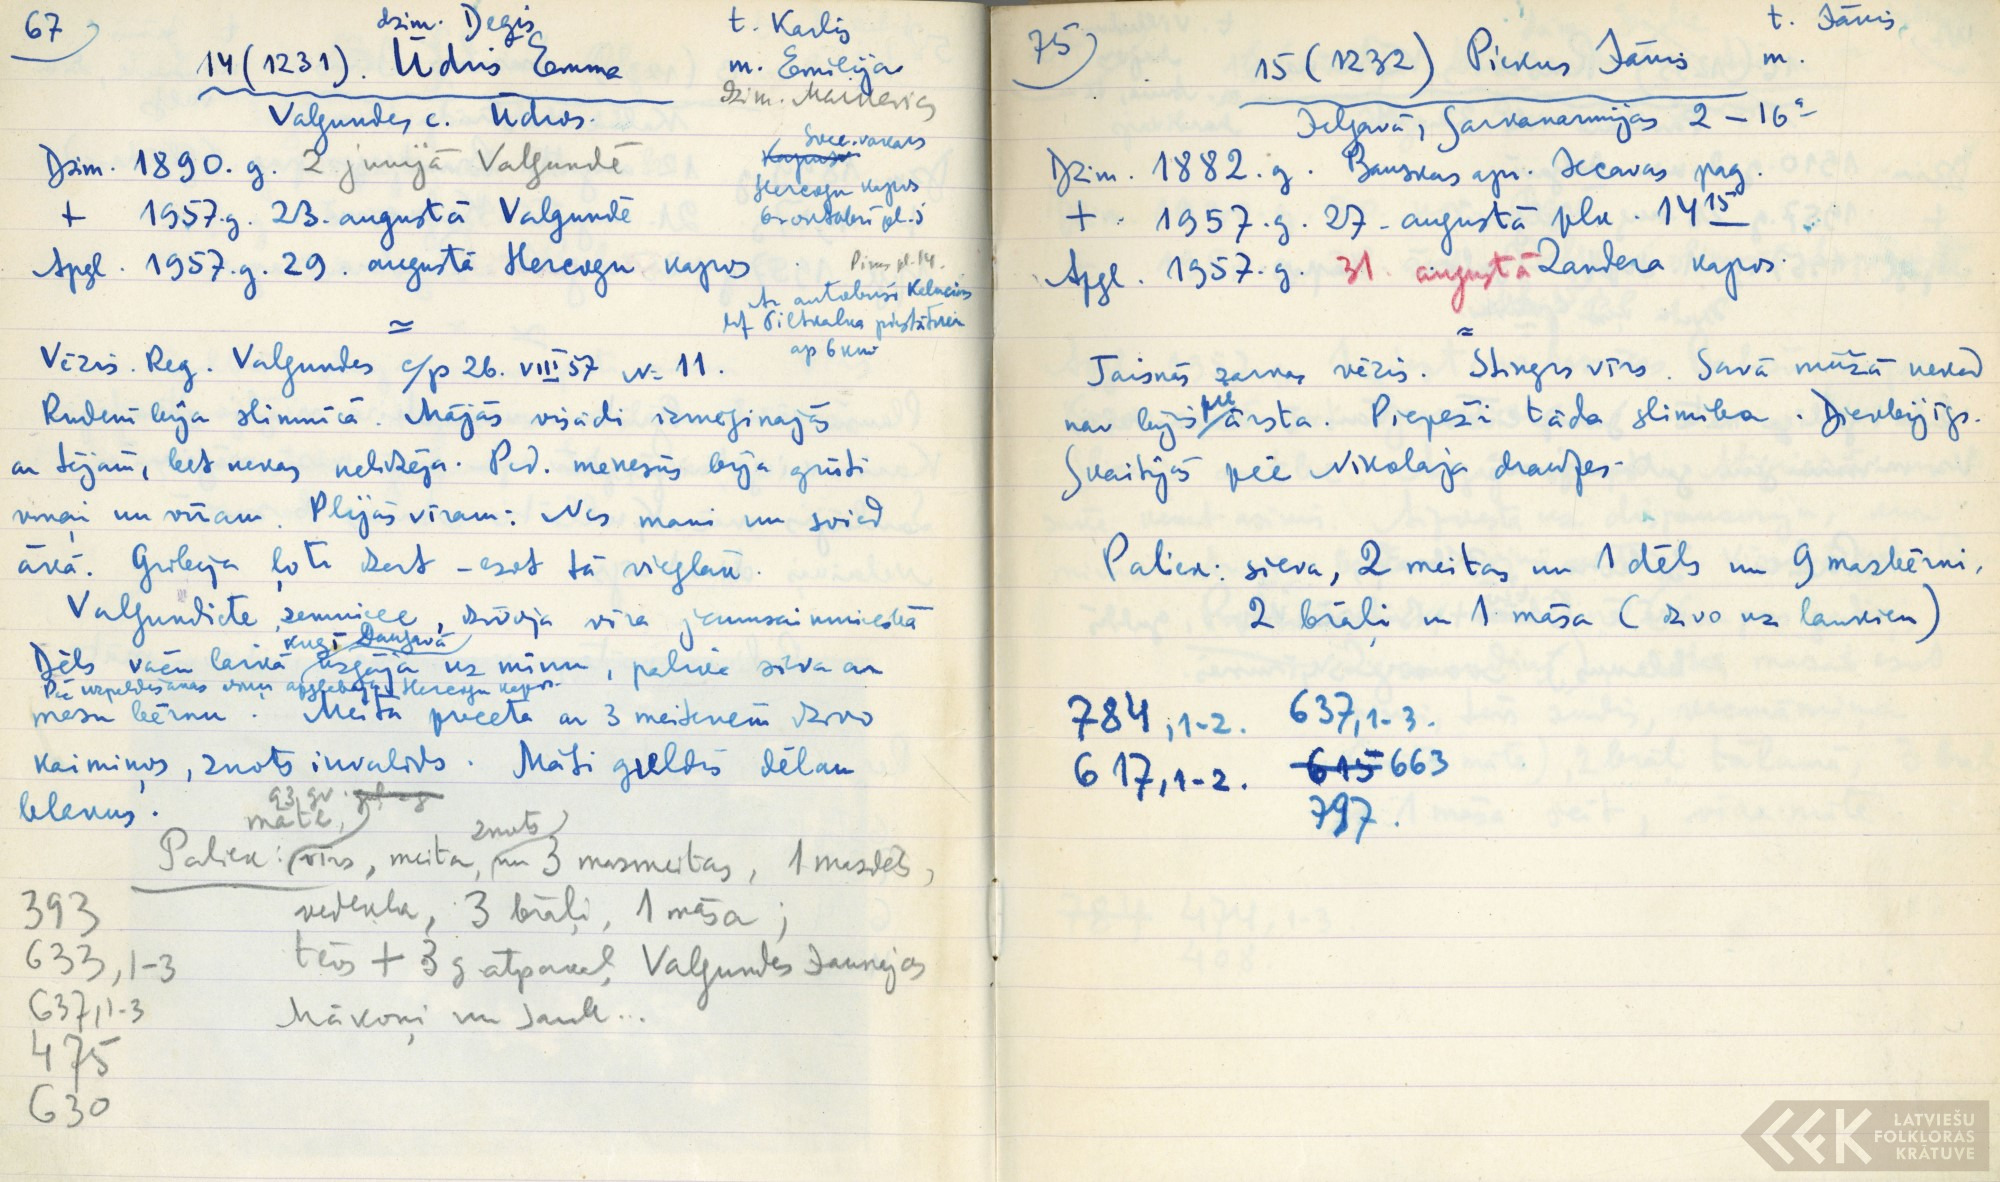 67
dzim. Deģis
t. Karlis
14 (1231). Ūdris Emma
m. Emilija
dzim.
Valgundes c. Ūdros.
Svec. vakars
Dzim. 1890. g. 2 junijā Valgundē
Hercogu kapos
+ 1957. g. 23. augustā Valgundē
6 oktobrī pl. 5
Apgl. 1957. g. 29. augustā Hercogu kapos
Pirms pl. 14.
Ar autobusi Kalnciems
līdz Piltkalna pieturai
ap 6 km
=
Vēzis. Reg. Valgundes c/p 26. VIII 57 № 11.
Rudenī bija slimnīcā. Mājās visādi izmeģinajās
ar tējam, bet nekas nelidzēja. Pēd. menesus bija grūti
viņai un vīram. Plijās vīram: Nes mani un svied
ārā. Gribēja ļoti dzert – esot tā vieglāk.
Valgundiete, zemniece, dzīvoja vīra jaunsaimniecībā
kuģī Daugavā
Dēls vācu laikā uzgāja uz mīnu, palika sieva ar
Pēc uzpeldēšanas viņu apglabāja Hercogu kapos.
mazu bērnu. Meita precēta ar 3 meitenēm dzīvo
kaimiņos, znots invalids. Māti guldīs dēlam
blakus.
93 gv.
māte,
znots
Paliek: vīrs, meita, un 3 mazmeitas, 1 mazdēls,
393
vedekla, 3 brāļi, 1 māsa;
633, 1-3
tēvs + 3 g. atpakaļ, Valgundes Jaunajos
637, 1-3
Mākoņi un
475
630
75
t. Jānis
15 (1232) Piekus Jānis
m.
Jelgavā, Sarkanarmijas 2 – 16a
Dzim. 1882. g. Bauskas apr. Iecavas pag.
+ 1957. g. 27. augustā plk. 14 15
Apgl. 1957. g. 31. augustā Zandera kapos.
=
Taisnās zarnas vēzis. Stingrs vīrs. Savā mūžā nekad
nav bijis pie ārsta. Piepeži tāda slimība. Dievbijīgs.
Skaitījās pie Nikolaja draudzes.
Paliek: sieva, 2 meitas un 1 dēls un 9 mazbērni,
2 brāļi un 1 māsa (dzīvo uz laukiem)
784, 1-2. 637, 1-3.
617, 1-2. 615 663
797.
LATVIEŠU
FOLKLORAS
KRĀTUVE